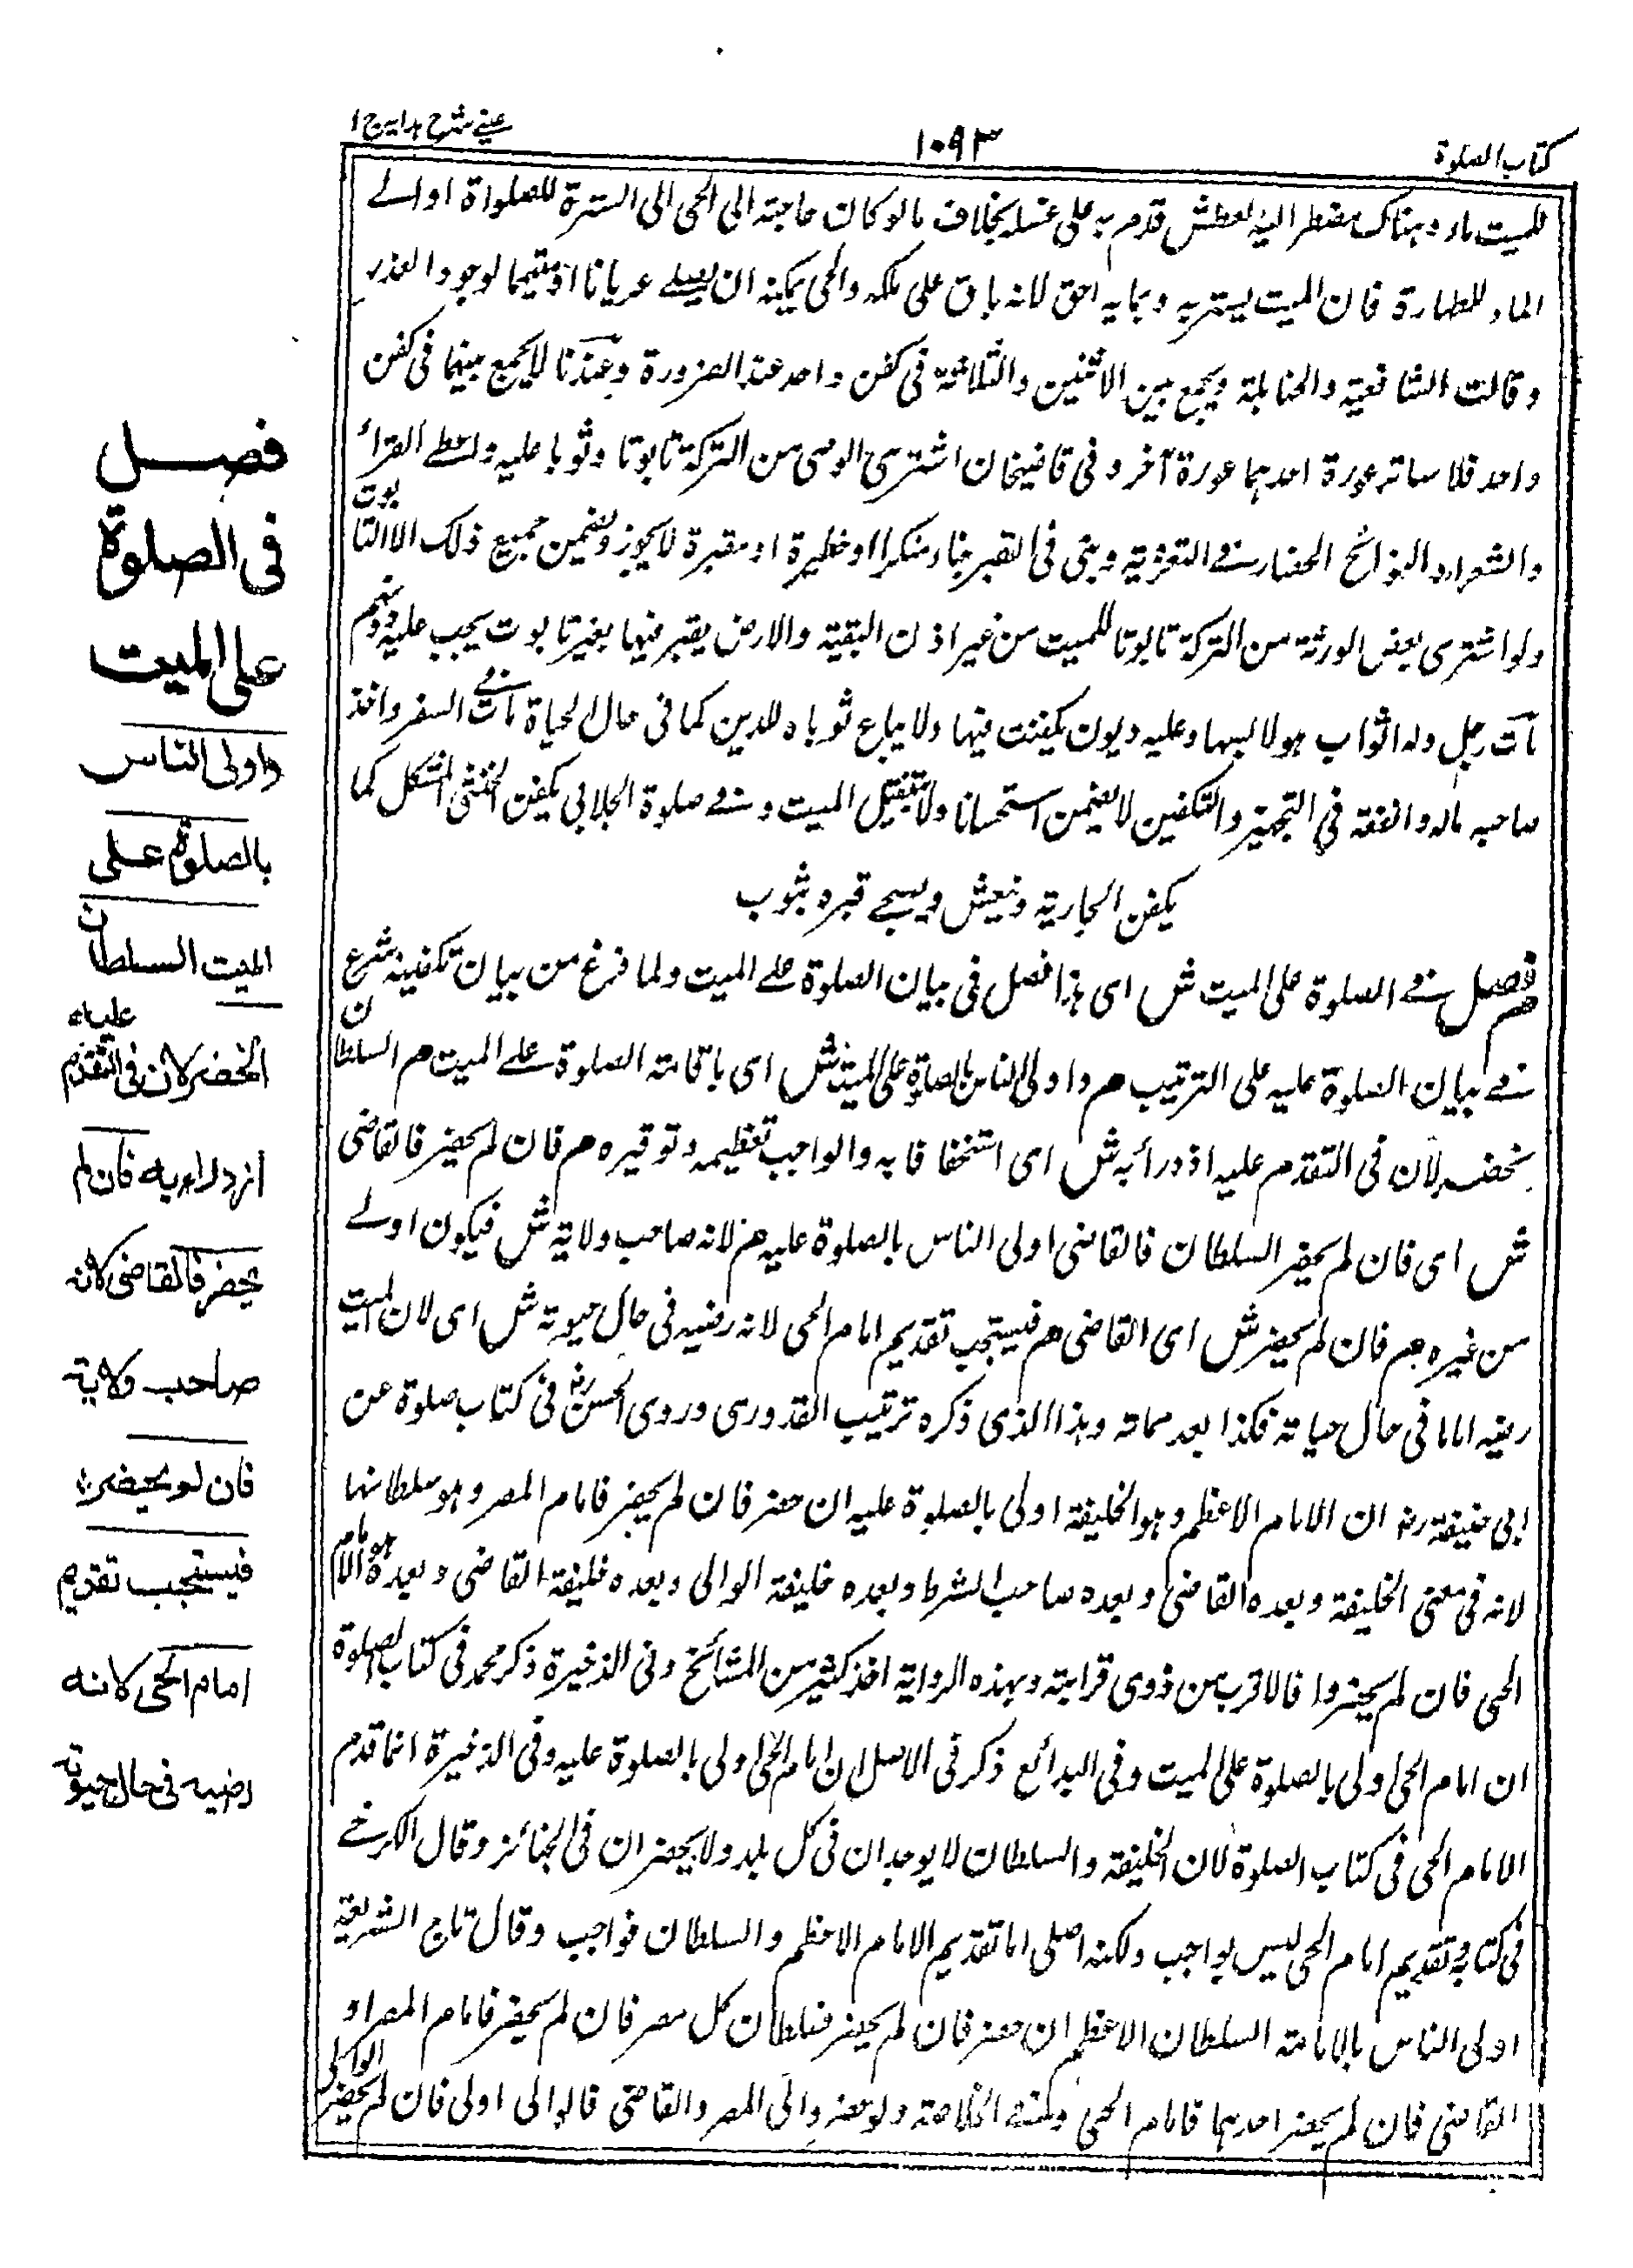 كتاب الصلوة
١٠٩٣
عيني شرح هدايه ج ١
للميت ماء وهناك مضطر اليه لعطش قدم به على غسله بخلاف ما لو كان حاجته الى الحي الى السترة للصلواة او الے
الماء للطهارة فان الميت يستر به وبما به احق لانه باق على ملكه والحي يمكنه ان يصلے عريانا او متيمما لوجود العذر
وقالت الشافعية والحنابلة ويجمع بين الاثنين والثلاثة في كفن واحد عند الضرورة وعندنا لا يجمع بينهما في كفن
واحد فلا ساتر عورة احدهما عورة آخر وفى قاضيخان اشترى الوصى من التركة تابوتا وثوبا عليه واعطے القراء
والشعراء والبوائح الحضار فے التعزية وبنى فى القبر بناء منكرا او خطيرة او مقبرة لا يجوز ويضمن جميع ذلك الا التابوت
ولو اشترى بعض الورثة من التركة تابوتا للميت من غير اذن البقية والارض يقبر فيها بغير تابوت يجب عليه دونهم
مات رجل وله اثواب هو لابسها وعليه ديون يكفنت فيها ولا يباع ثوباه للدين كما فى حال الحياة مات فے السفر واخذ
صاحبه ماله وانفقه في التجهيز والتكفين لا يضمن استحسانا ولا بتقبيل الميت و فے صلوة الجلابي يكفن الخنثى المشكل كما
يكفن الجارية وينعش ويسجے قبره بثوب
م فصل فے الصلوة على الميت ش اى هذا فصل فى بيان الصلوة علے الميت ولما فرغ من بيان تكفينه شرع
فے بيان الصلوة عليه على الترتيب م واولى الناس بالصلوة على الميت ش اى باقامة الصلوة علے الميت م السلطان
يحضر لان فى التقدم عليه ازدراء به ش اى استخفافا به والواجب تعظيمه وتوقيره م فان لم يحضر فالقاضى
ش اى فان لم يحضر السلطان فالقاضى اولى الناس بالصلوة عليه م لانه صاحب ولاية ش فيكون اولے
من غيره م فان لم يحضر ش اى القاضى م فيستحب تقديم امام الحى لانه رضيه فى حال حيوته ش اى لان الميت
رضيه اماما فى حال حياته فكذا بعد مماته وهذا الذى ذكره ترتيب القدورى وروى الحسن رح فى كتاب صلوة عن
ابى حنيفة رح ان الامام الاعظم وهو الخليفة اولى بالصلوة عليه ان حضر فان لم يحضر فامام المصر وهو سلطانها
لانه فى معنى الخليفة وبعده القاضى وبعده صاحب الشرط وبعده خليفة الوالى وبعده خليفة القاضى وبعد هؤلاء امام
الحى فان لم يحضروا فالاقرب من ذوى قرابته وبهذه الرواية اخذ كثير من المشائخ وفى الذخيرة ذكر محمد فى كتاب الصلوة
ان امام الحى اولى بالصلوة على الميت وفى البدائع ذكر فى الاصل ان امام الحى اولى بالصلوة عليه وفى الذخيرة انما قدم
الامام الحى فى كتاب الصلوة لان الخليفة والسلطان لا يوجدان فى كل بلد ولا يحضران فى الجنائز وقال الكرخے
فى كتابه وتقديم امام الحى ليس بواجب ولكنه اصلى اما تقديم الامام الاعظم والسلطان فواجب وقال تاج الشريعة
اولى الناس بالامامة السلطان الاعظم ان حضر فان لم يحضر فسلطان كل مصر فان لم يحضر فامام المصر او
القاضى فان لم يحضر احدهما فامام الحى وفے الخلاصة ولو حضر والى المصر والقاضى فالوالى اولى فان لم يحضر الوالى
فصل
فى الصلوة
على الميت
واولى الناس
بالصلوة على
الميت السلطان
الخضر لان فى التقدم عليه
ازدراء به فان لم
يحضر فالقاضى لانه
صاحب ولاية
فان لم يحضر
فيستحب تقديم
امام الحى لانه
رضيه فى حال حيوته